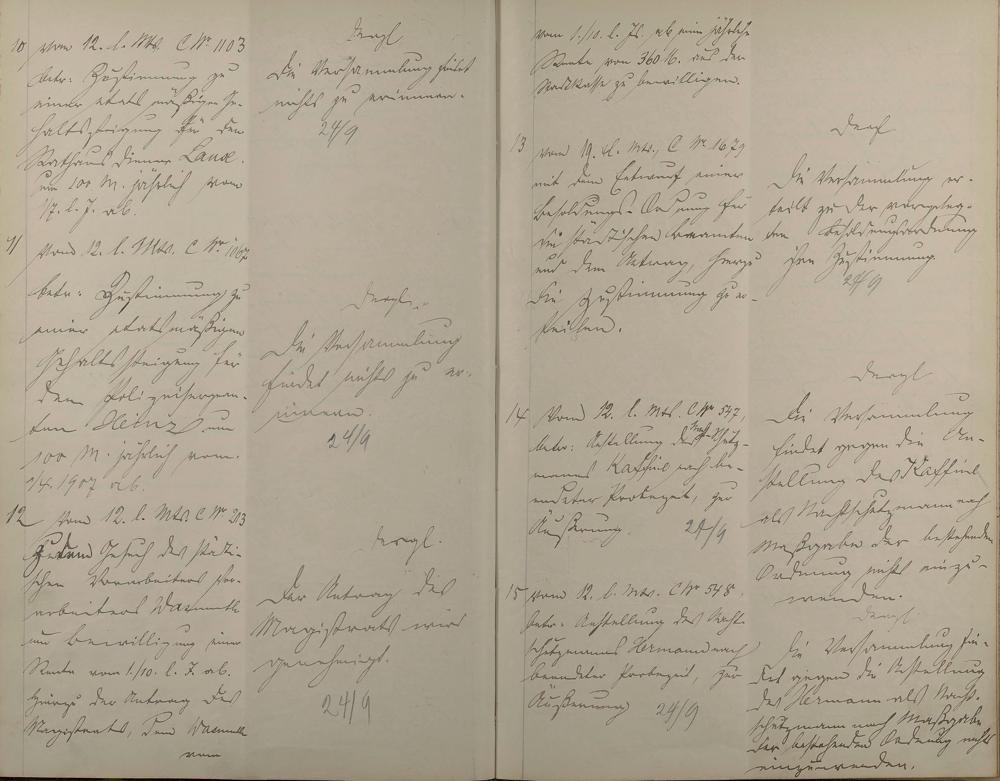 10 vom 12. l. Mts. C Nr. 1103
betr: Zustimmung zu
einer etatsmäßigen Ge-
haltssteigung für den
Rathausdiener Lause
um 100 M. jährlich vom
l. J. ab.
dergl
Die Versammlung findet
nichts zu erinnern.
24/9
11 Vom 12. l. Mts. C Nr. 1067
betr: Zustimmung zu
einer etatsmäßigen
Gehaltssteigung für
den Polizeisergean-
ten Heinz um
100 M. jährlich vom
1/4. 1907 ab.
dergl.
Die Versammlung
findet nichts zu er-
innern.
24/9
12 Vom 12. l. Mts. C Nr. 213
zu dem Gesuch des städti-
schen Vorarbeiters Vor-
arbeiters Warmuth
um Bewilligung einer
Rente vom 1./10. l. J. ab.
hierzu der Antrag des
Magistrats, dem Warmuth
vom
dergl.
Der Antrag des
Magistrats wird
genehmigt.
24/9
vom 1./10. l. Js. ab eine jährliche
Rente von 360 M. aus der
Stadtkasse zu bewilligen.
13 vom 19. l. Mts., C Nr. 1679
mit dem Entwurf einer
Besoldungs-Ordnung für
die städtischen Beamten
und dem Antrag, hierzu
die Zustimmung zu er-
teilen.
Die Versammlung er-
teilt zu der vorgeleg-
ten Besoldungsordnung
ihre Zustimmung.
24/9
14 Vom 12. l. Mts. C Nr. 547,
betr: Anstellung des Nacht-Schutz-
manns Kaffiel nach be-
endeter Probezeit, zur
Äußerung. 24/9
dergl
Die Versammlung
findet gegen die An-
stellung des Kaffiel
als Nachtschutzmann nach
Maßgabe der bestehenden
Ordnung nichts einzu-
wenden.
15 vom 12. l. Mts. C Nr. 548.
betr: Anstellung des Nacht-
schutzmanns Hermann nach
beendeter Probezeit, zur
Äußerung 24/9
dergl.
Die Versammlung fin-
det gegen die Anstellung
des Hermann als Nacht-
schutzmann nach Maßgabe
der bestehenden Ordnung nichts
einzuwenden.